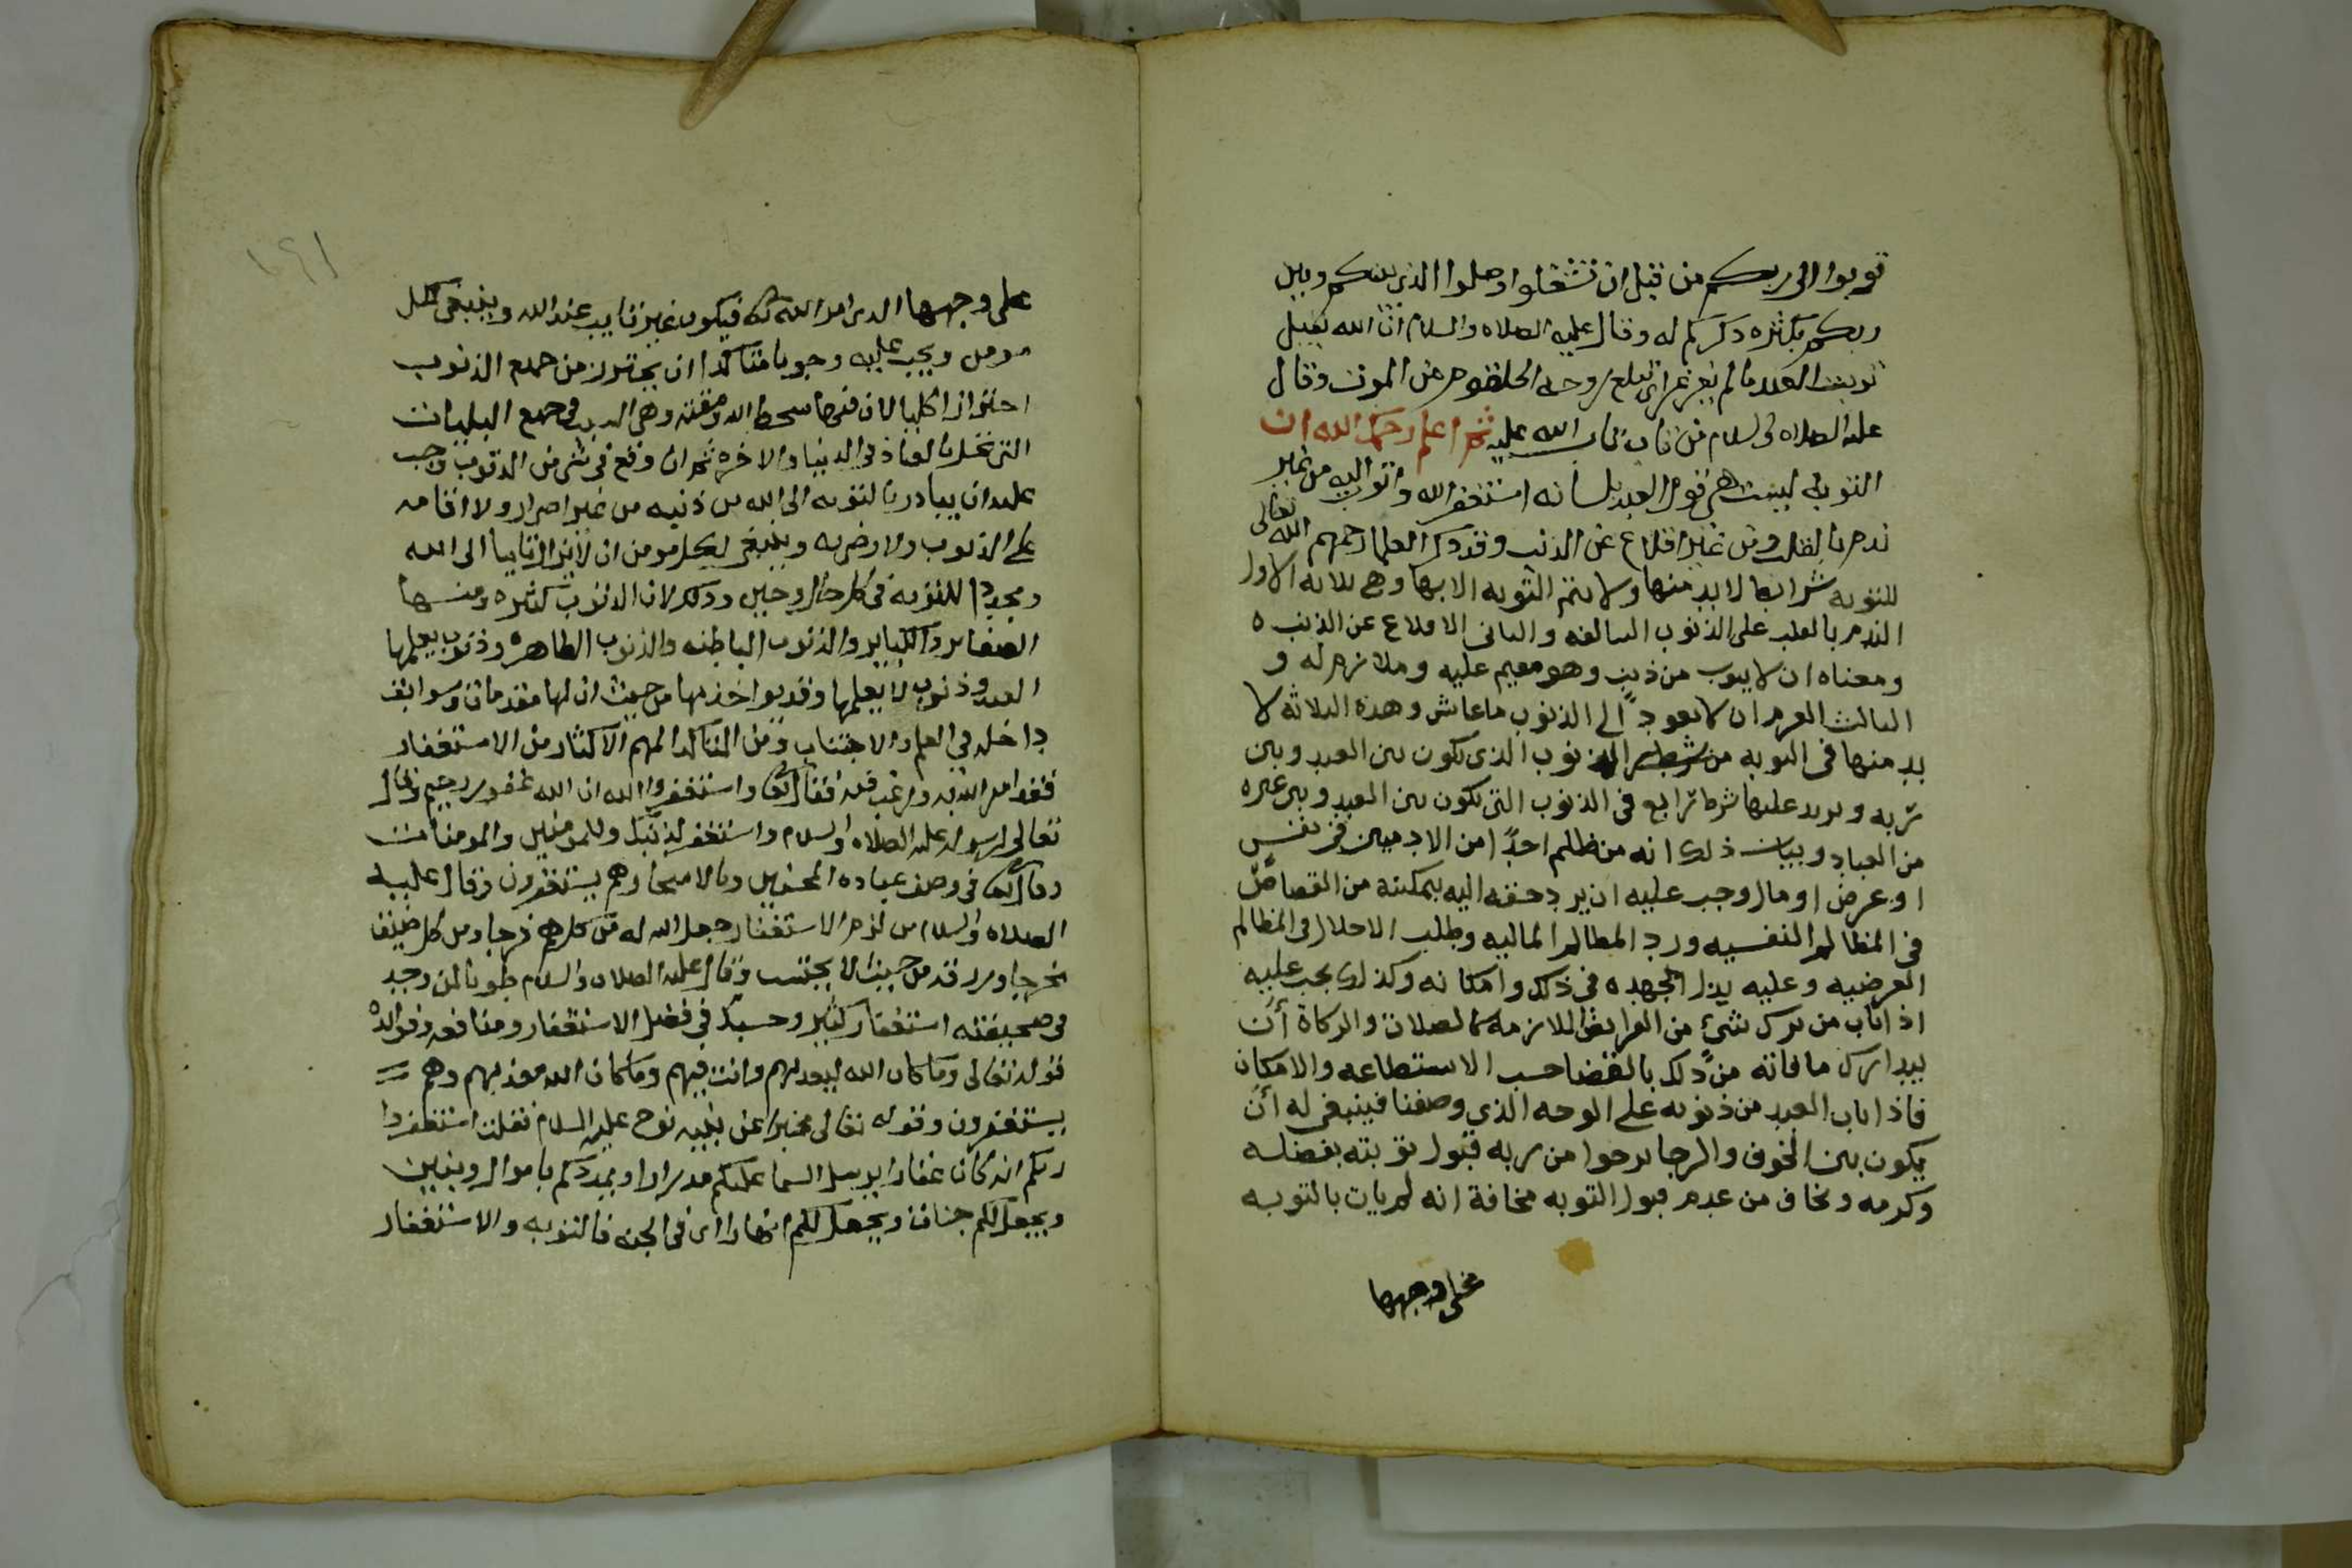 توبوا الى ربكم من قبل ان تشتغلوا وصلوا الذي بينكم وبين
ربكم بكثره ذكركم له وقال عليه الصلاه والسلام ان الله يقبل
توبت العبد ما لم يغرغر اي تبلغ روحه الحلقوم من الموت وقال
عليه الصلاه والسلام من تاب تاب الله عليه ثم اعلم رحمك الله ان
التوبه ليست هي قول العبد بلسانه استغفر الله واتوب اليه من غير
ندم بالقلب ومن غير اقلاع عن الذنب وقد ذكر العلما رحمهم الله تعالى
للتوبه شرائطا لابد منها ولا تتم التوبه الا بها وهي ثلاثه الاول
الندم بالقلب على الذنوب السالفه والثاني الاقلاع عن الذنب ه
ومعناه ان لا يتوب من ذنب وهو مقيم عليه وملازم له و
الثالث العزم ان لا يعود الى الذنوب ماعاش وهذه الثلاثه لا
بد منها في التوبه من الذنوب الذي تكون بين العبد وبين
ربه ويزيد عليها شرطا رابع في الذنوب التي تكون بين العبد وبين غيره
من العباد وبيان ذلك انه من ظلم احدًا من الادميين في نفس
او عرض او مال وجب عليه ان يرد حقه اليه بتمكينه من القصاص
في المظالم النفسيه ورد المظالم الماليه وطلب الاحلال في المظالم
العرضيه وعليه بذل الجهده في ذلك وامكانه وكذلك يجب عليه
اذا تاب من ترك شيء من الفرايض اللازمه كالصلاة والزكاة أن
يتدارك ما فاته من ذلك بالقضا حسب الاستطاعه والامكان
فاذا تاب العبد من ذنوبه على الوجه الذي وصفنا فينبغي له أن
يكون بين الخوف والرجا يرجوا من ربه قبول توبته بفضله
وكرمه ويخاف من عدم قبول التوبه مخافة انه لم يات بالتوبه
على وجهها
١٤١
على وجهها الذي امر الله تعالى فيكون غير تايب عند الله وينبغي لكل
مومن ويجب عليه وجوبا متاكدا ان يحترز من جميع الذنوب
احترازا كليا لان فيها سخط الله ومقته وهي السبب في جميع البليات
التي تحل بالعباد في الدنيا والاخره ثم ان وقع في شي من الذنوب وجب
عليه ان يبادر بالتوبه الى الله من ذنبه من غير اصرار ولا اقامه
على الذنوب ولا رضى به وينبغي لكل مومن ان لايزال تايبا الى الله
ومجددا للتوبة في كل حال وحين وذلك لان الذنوب كثيره ومنها
الصغاير والكباير والذنوب الباطنه والذنوب الظاهره وذنوب يعلمها
العبد وذنوب لا يعلمها وقد يواخذ بها من حيث ان لها مقدمات وسوابق
داخله في العلم والاجتناب ومن المتاكد المهم الاكثار من الاستغفار
فقد امر الله به ورغب فيه فقال تعالى واستغفروا الله ان الله غفور رحيم وقال
تعالى لرسوله عليه الصلاه والسلام واستغفر لذنبك وللمومنين والمومنات
وقال تعالى في وصف عباده المحسنين وبالاسحار هم يستغفرون وقال عليه
الصلاه والسلام من لزم الاستغفار جعل الله له من كل هم فرجا ومن كل ضيق
مخرجا ورزقه من حيث لا يحتسب وقال عليه الصلاه والسلام طوبا لمن وجد
في صحيفته استغفار كثير وحسبك في فضل الاستغفار ومنافعه وفوائده
قوله تعالى وما كان الله ليعذبهم وانت فيهم وما كان الله معذبهم وهم
يستغفرون وقوله تعالى مخبرا عن نبيه نوح عليه السلام فقلت استغفروا
ربكم انه كان غفارا يرسل السما عليكم مدرارا ويمددكم باموال وبنين
ويجعل لكم جنات ويجعل لكم انهارا اي في الجنه فالتوبه والاستغفار